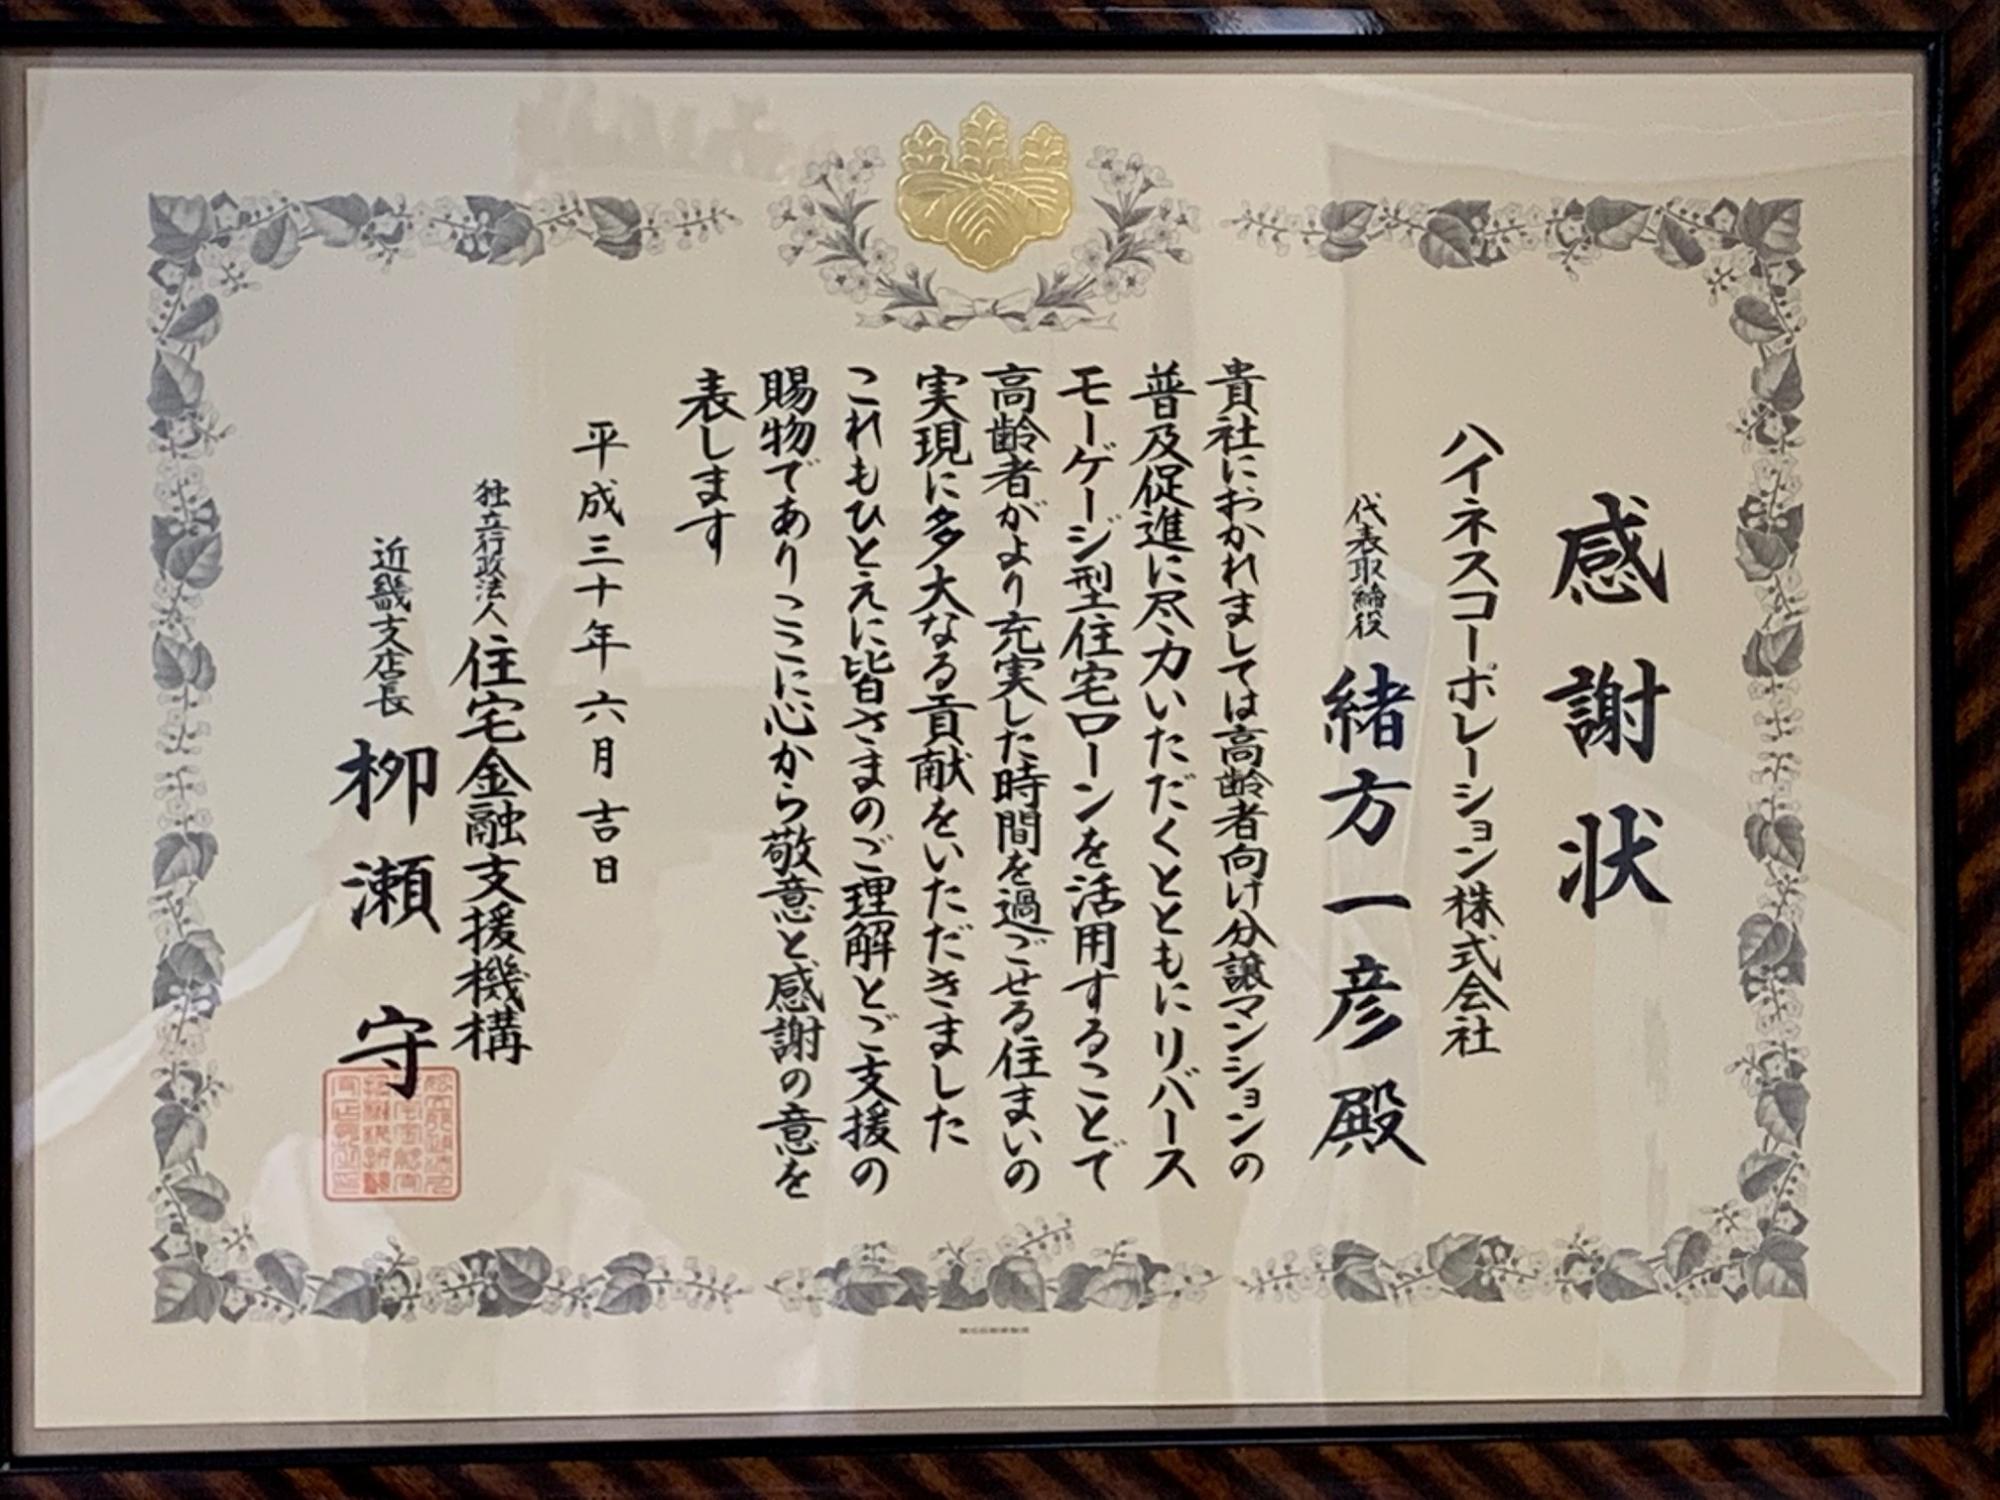 感謝状
ハイネスコーポレーション株式会社
代表取締役 緒方一彦殿
貴社におかれましては高齢者向け分譲マンションの
普及促進に尽力いただくとともにリバース
モーゲージ型住宅ローンを活用することで
高齢者がより充実した時間を過ごせる住まいの
実現に多大なる貢献をいただきました
これもひとえに皆さまのご理解とご支援の
賜物でありここに心から敬意と感謝の意を
表します
平成三十年六月吉日
独立行政法人住宅金融支援機構
近畿支店長 柳瀬守